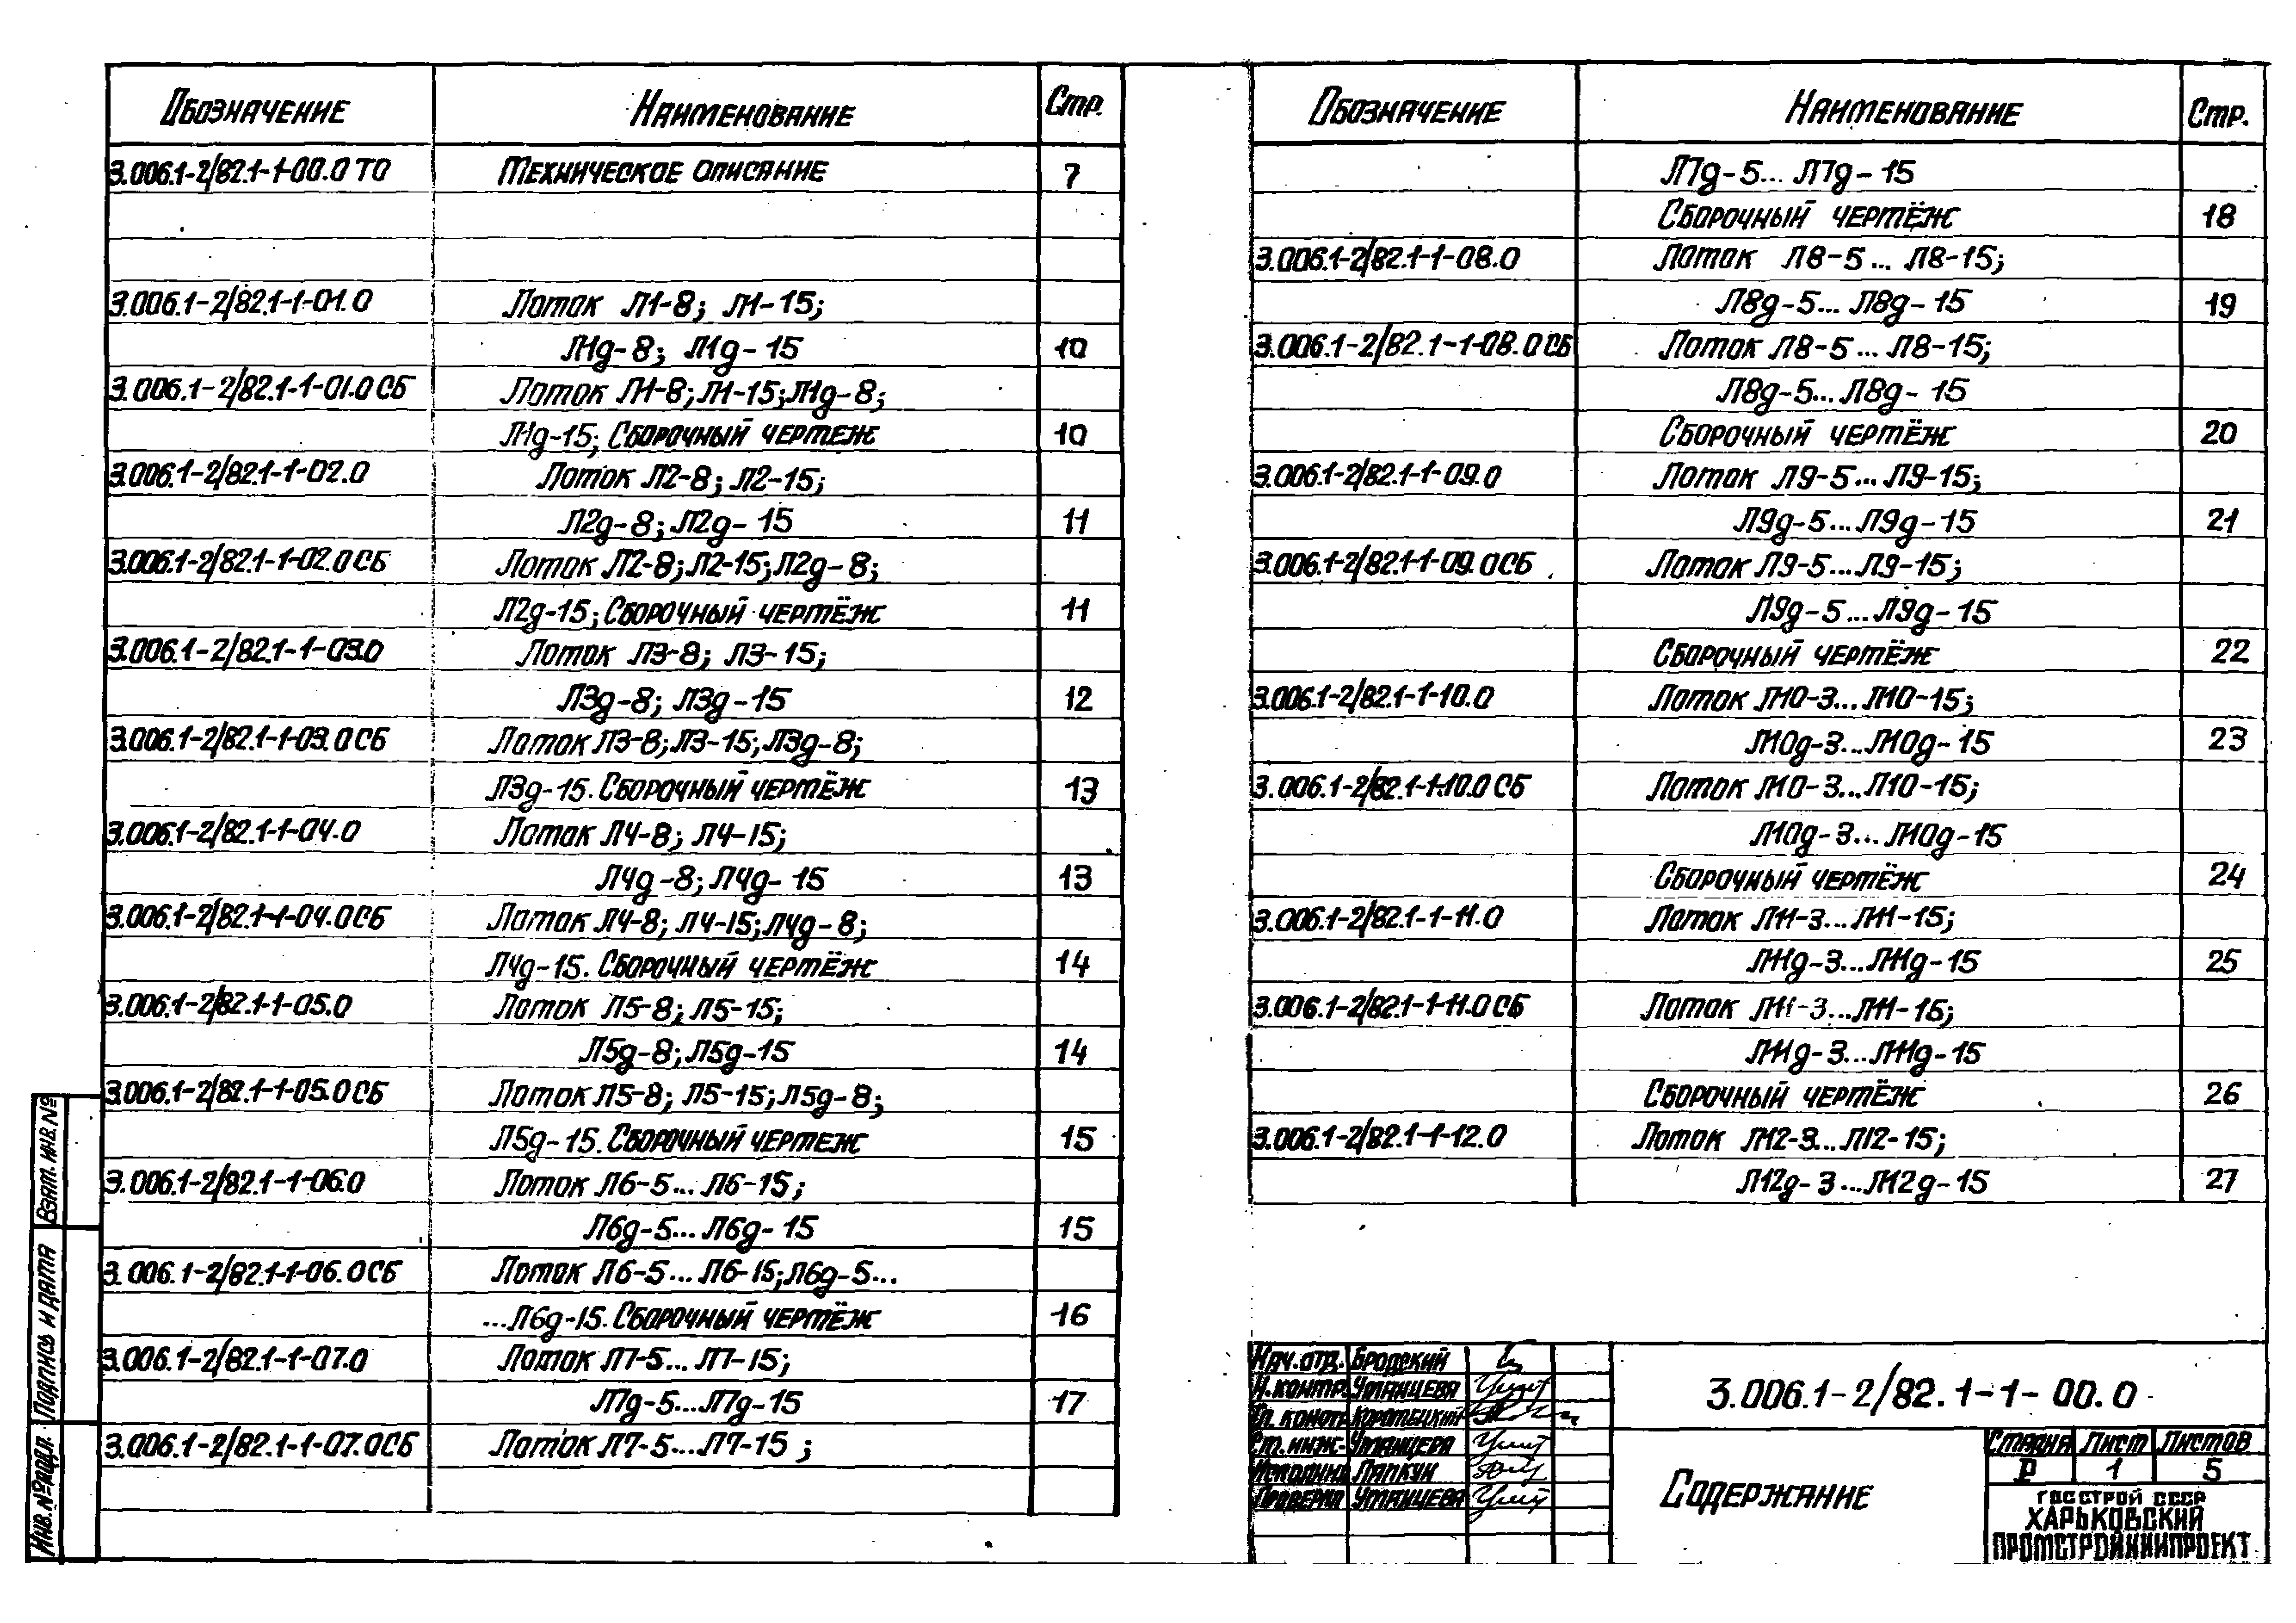 Обозначение Наименование Стр.
3.006.1-2/82.1-1-00.0 ТО Техническое описание 7
3.006.1-2/82.1-1-01.0 Лоток Л1-8; Л1-15;
Л1д-8; Л1д-15 10
3.006.1-2/82.1-1-01.0 СБ Лоток Л1-8; Л1-15; Л1д-8;
Л1д-15; Сборочный чертеж 10
3.006.1-2/82.1-1-02.0 Лоток Л2-8; Л2-15;
Л2д-8; Л2д-15 11
3.006.1-2/82.1-1-02.0 СБ Лоток Л2-8; Л2-15; Л2д-8;
Л2д-15; Сборочный чертёж 11
3.006.1-2/82.1-1-03.0 Лоток Л3-8; Л3-15;
Л3д-8; Л3д-15 12
3.006.1-2/82.1-1-03.0 СБ Лоток Л3-8; Л3-15; Л3д-8;
Л3д-15. Сборочный чертёж 13
3.006.1-2/82.1-1-04.0 Лоток Л4-8; Л4-15;
Л4д-8; Л4д-15 13
3.006.1-2/82.1-1-04.0 СБ Лоток Л4-8; Л4-15; Л4д-8;
Л4д-15. Сборочный чертёж 14
3.006.1-2/82.1-1-05.0 Лоток Л5-8; Л5-15;
Л5д-8; Л5д-15 14
3.006.1-2/82.1-1-05.0 СБ Лоток Л5-8; Л5-15; Л5д-8;
Л5д-15. Сборочный чертеж 15
3.006.1-2/82.1-1-06.0 Лоток Л6-5... Л6-15;
Л6д-5... Л6д-15 15
3.006.1-2/82.1-1-06.0 СБ Лоток Л6-5... Л6-15; Л6д-5...
...Л6д-15. Сборочный чертёж 16
3.006.1-2/82.1-1-07.0 Лоток Л7-5... Л7-15;
Л7д-5...Л7д-15 17
3.006.1-2/82.1-1-07.0 СБ Лоток Л7-5...Л7-15;
Взят. инв. №
Подпись и дата
Инв. № подл.
Обозначение Наименование Стр.
Л7д-5... Л7д-15
Сборочный чертёж 18
3.006.1-2/82.1-1-08.0 Лоток Л8-5... Л8-15;
Л8д-5... Л8д-15 19
3.006.1-2/82.1-1-08.0 СБ Лоток Л8-5... Л8-15;
Л8д-5... Л8д-15
Сборочный чертёж 20
3.006.1-2/82.1-1-09.0 Лоток Л9-5... Л9-15;
Л9д-5...Л9д-15 21
3.006.1-2/82.1-1-09.0 СБ Лоток Л9-5...Л9-15;
Л9д-5...Л9д-15
Сборочный чертёж 22
3.006.1-2/82.1-1-10.0 Лоток Л10-3...Л10-15;
Л10д-3...Л10д-15 23
3.006.1-2/82.1-1-10.0 СБ Лоток Л10-3...Л10-15;
Л10д-3...Л10д-15
Сборочный чертёж 24
3.006.1-2/82.1-1-11.0 Лоток Л11-3...Л11-15;
Л11д-3...Л11д-15 25
3.006.1-2/82.1-1-11.0 СБ Лоток Л11-3...Л11-15;
Л11д-3...Л11д-15
Сборочный чертёж 26
3.006.1-2/82.1-1-12.0 Лоток Л12-3...Л12-15;
Л12д-3...Л12д-15 27
Нач. отд. Бродский
Н. контр. Уманцева
Гл. констр. Коротецкий
Ст. инж. Уманцева
Исполнил Ляпкун
Проверил Уманцева
3.006.1-2/82.1-1-00.0
Содержание
Стадия Лист Листов
Р 1 5
ГОССТРОЙ СССР
ХАРЬКОВСКИЙ
ПРОМСТРОЙНИИПРОЕКТ